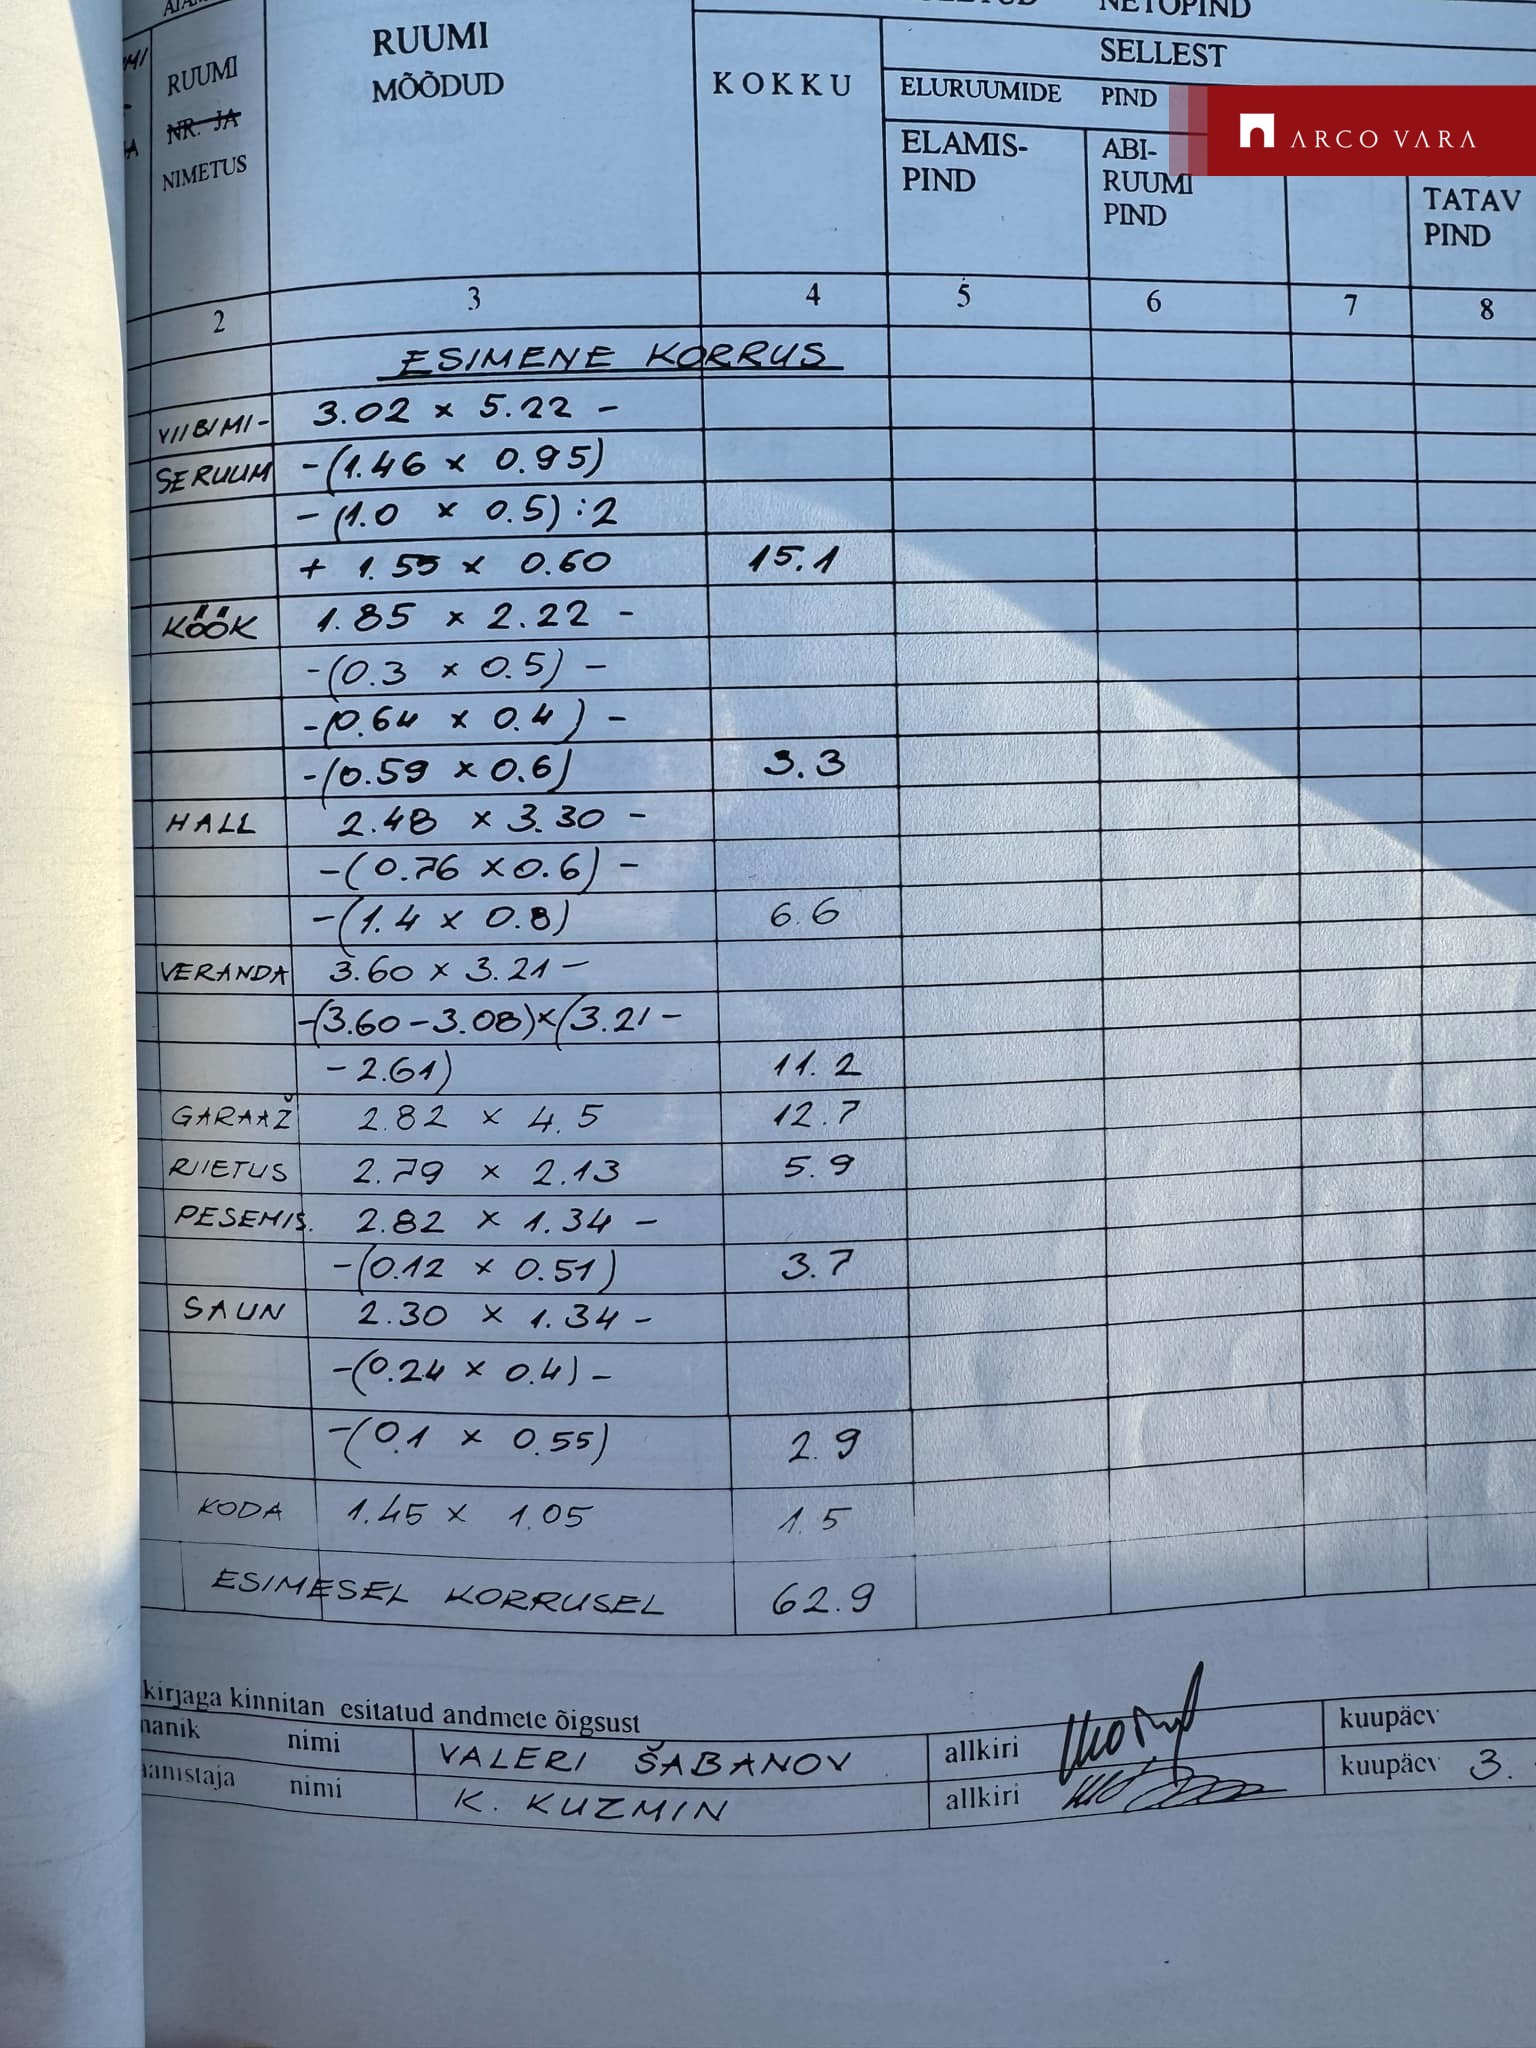 NETOPIND
RUUMI
NR. JA
NIMETUS
RUUMI
MÕÕDUD
KOKKU
SELLEST
ELURUUMIDE PIND
ELAMIS-
PIND
ABI-
RUUMI
PIND
TATAV
PIND
ARCO VARA
2 3 4 5 6 7 8
ESIMENE KORRUS
VIIBIMI- 3.02 x 5.22 -
SERUUM -(1.46 x 0.95)
-(1.0 x 0.5) :2
+ 1.55 x 0.60 15.1
KÖÖK 1.85 x 2.22 -
-(0.3 x 0.5) -
-(0.64 x 0.4) -
-(0.59 x 0.6) 3.3
HALL 2.48 x 3.30 -
-(0.76 x 0.6) -
-(1.4 x 0.8) 6.6
VERANDA 3.60 x 3.21 -
-(3.60-3.08)x(3.21 -
- 2.61) 11.2
GARAAŽ 2.82 x 4.5 12.7
RIIETUS 2.79 x 2.13 5.9
PESEMIS. 2.82 x 1.34 -
-(0.12 x 0.51) 3.7
SAUN 2.30 x 1.34 -
-(0.24 x 0.4) -
-(0.1 x 0.55) 2.9
KODA 1.45 x 1.05 1.5
ESIMESEL KORRUSEL 62.9
kirjaga kinnitan esitatud andmete õigsust
manik nimi VALERI ŠABANOV allkiri kuupäev
aanistaja nimi K. KUZMIN allkiri kuupäev 3.